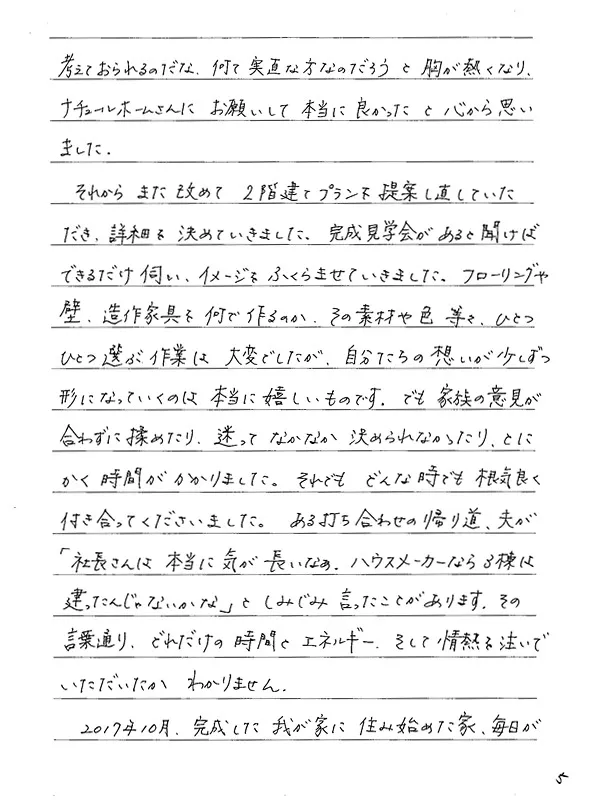 考えておられるのだな、何て実直な方なのだろうと胸が熱くなり、
ナチュールホームさんにお願いして本当に良かったと心から思い
ました。
それからまた改めて2階建てプランを提案し直していた
だき、詳細を決めていきました。完成見学会があると聞けば
できるだけ伺い、イメージをふくらませていきました。フローリングや
壁、造作家具を何で作るのか、その素材や色等を、ひとつ
ひとつ選ぶ作業は大変でしたが、自分たちの想いが少しずつ
形になっていくのは本当に嬉しいものです。でも家族の意見が
合わずに揉めたり、迷ってなかなか決められなかったり、とに
かく時間がかかりました。それでもどんな時でも根気良く
付き合ってくださいました。ある打ち合わせの帰り道、夫が
「社長さんは本当に気が長いなぁ。ハウスメーカーなら3棟は
建ったんじゃないかな」としみじみ言ったことがあります。その
言葉通り、どれだけの時間とエネルギー、そして情熱を注いで
いただいたかわかりません。
2017年10月、完成した我が家に住み始めた家、毎日が
5